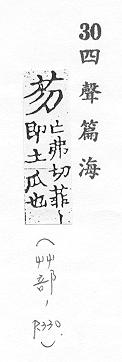 30 四聲篇海
芴 亡弗切菲丨
即土瓜也
(艸部, P.330.)